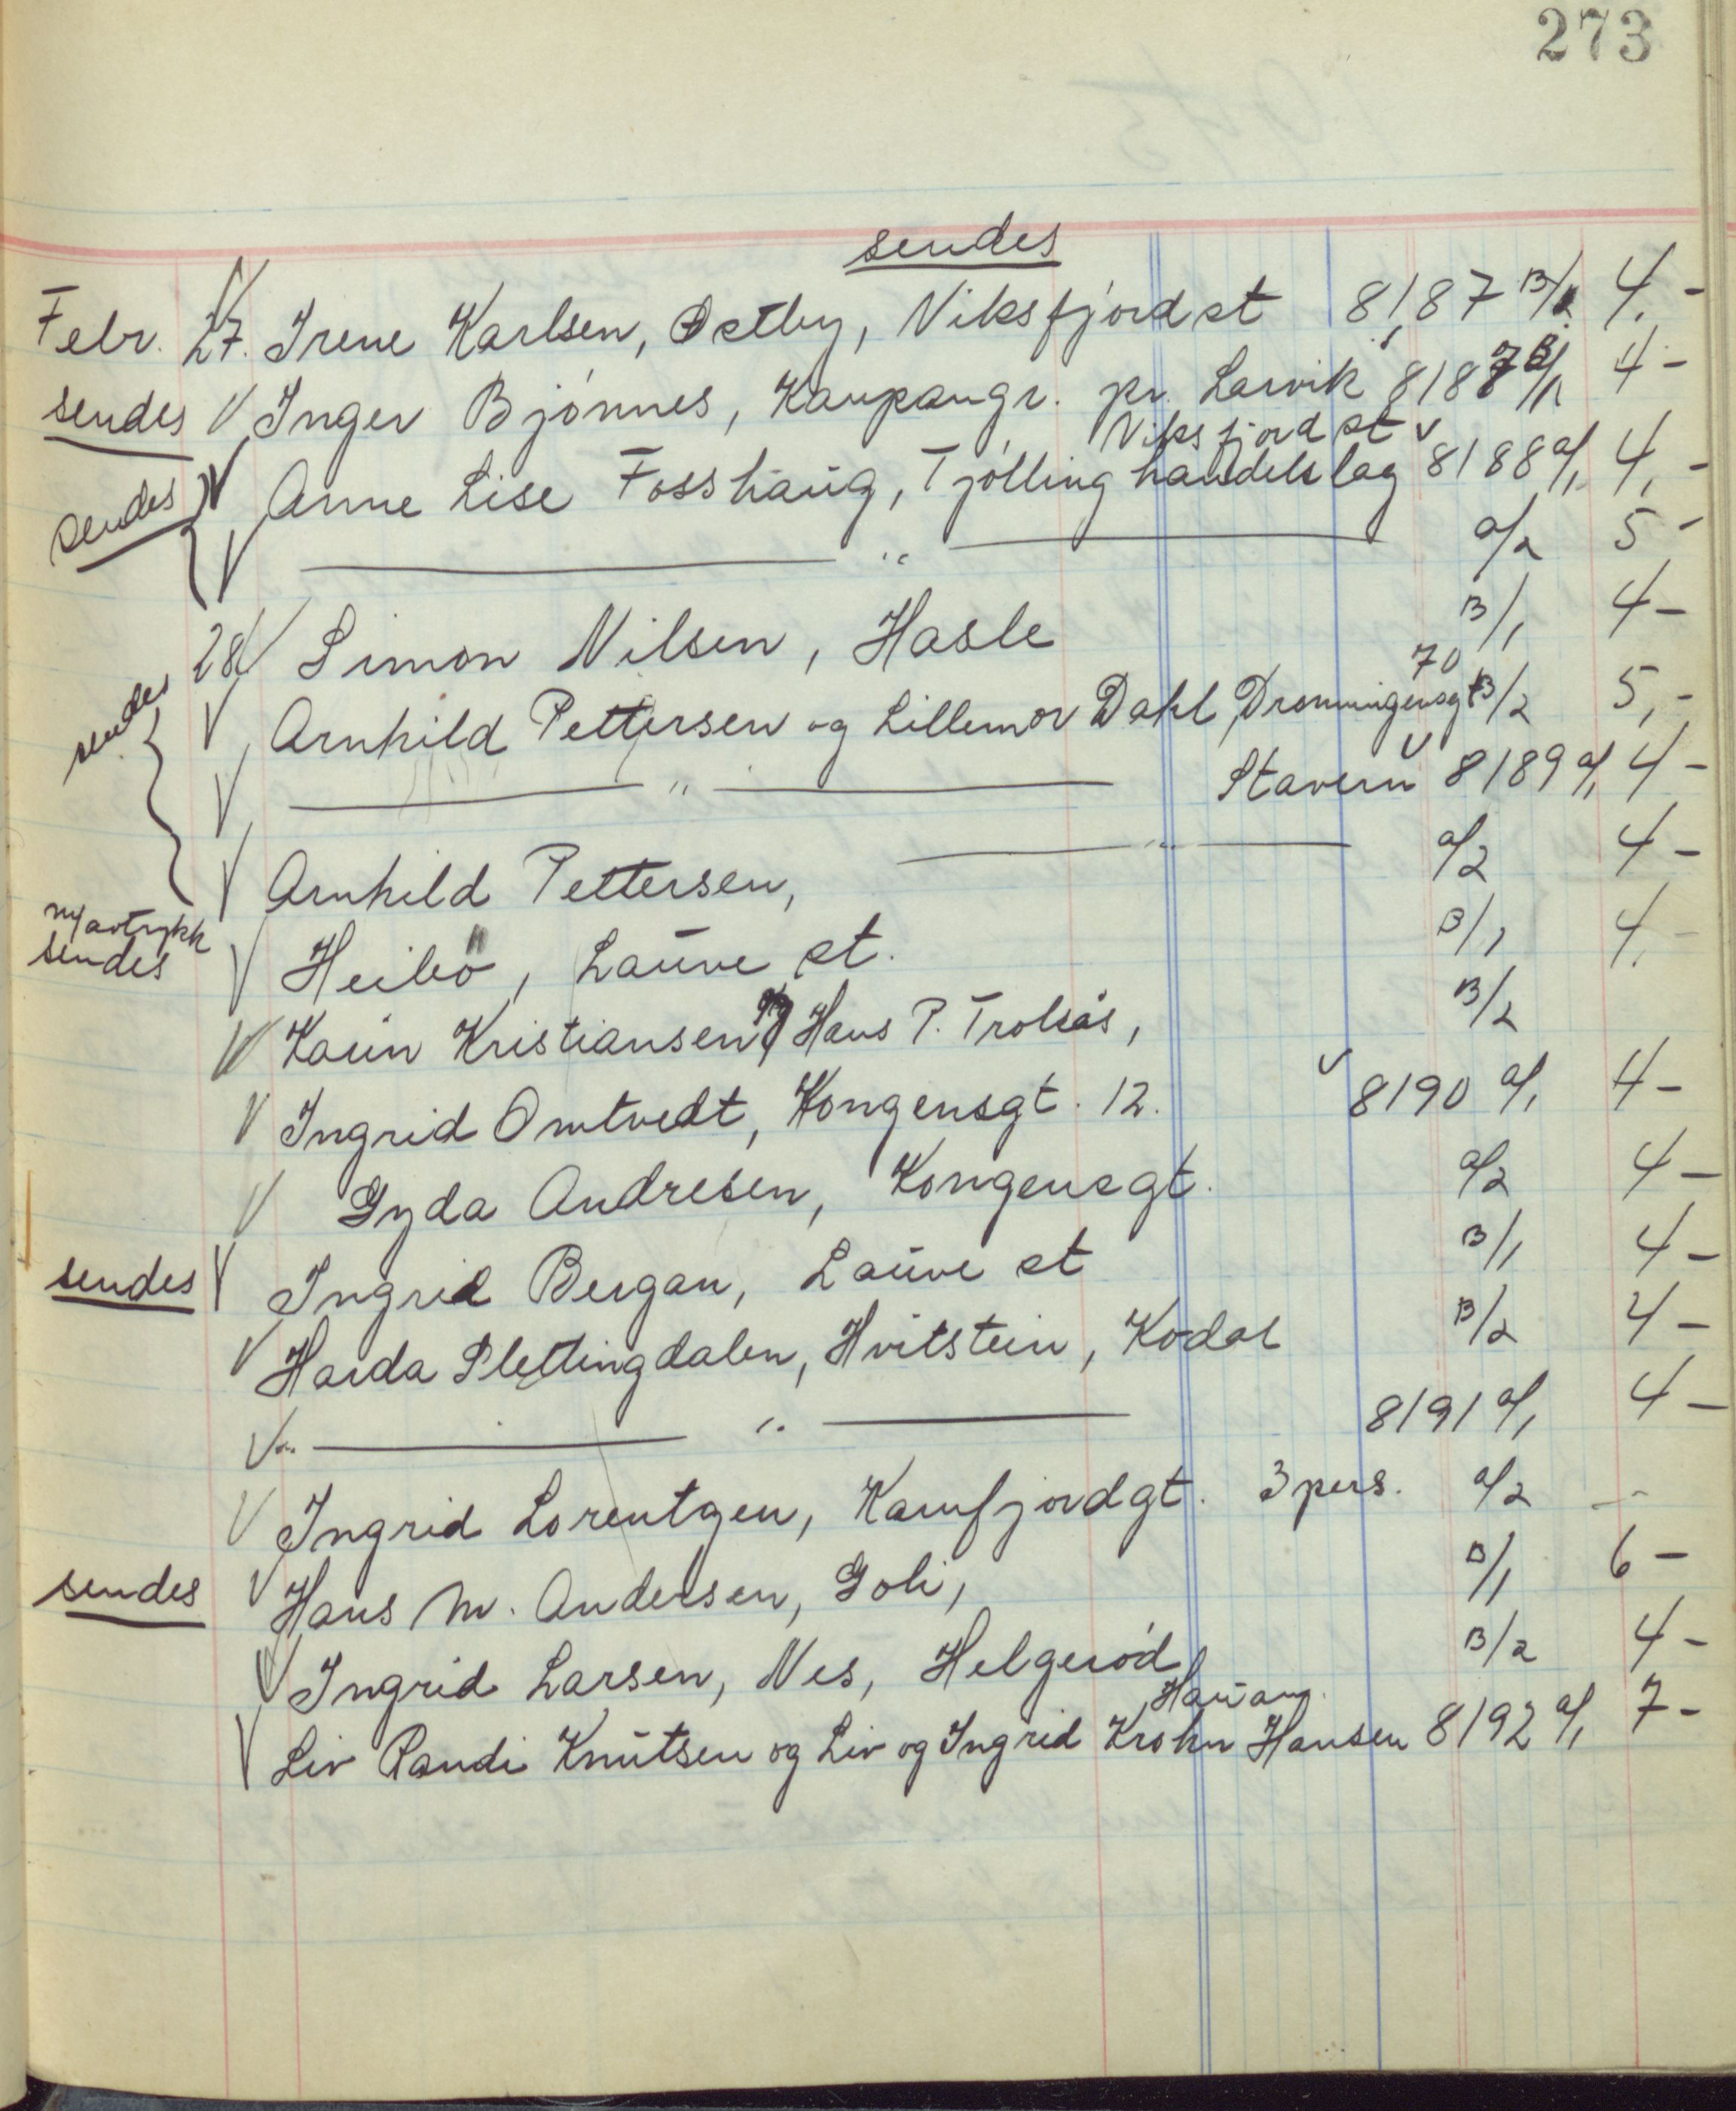 273
sendes
Febr. 27. Irene Karlsen, Østby, Viksfjord st 8187 B/2 4.-
sendes V Inger Bjönnes, Kaupangr. pr. Larvik 8187 B/1 4-
Viksfjord st v
sendes V Anne Lise Fosshaug, Tjölling handelslag 8188 a/1 4,-
V —— " —— a/2 5-
28 V Simon Nilsen, Hasle B/1 4-
70
sendes V Arnhild Pettersen og Lillemor Dahl, Dronningensgt B/2 5,-
V —— " —— Stavern v 8189 a/1 4-
V Arnhild Pettersen, —— " —— a/2 4-
m/avtrykk
sendes V Heibö, Lauve st. B/1 4.-
V Karin Kristiansen Hans P. Trolsås, B/2
V Ingrid Omtvedt, Kongensgt. 12. v 8190 a/1 4-
V Gyda Andresen, Kongensgt. a/2 4-
sendes V Ingrid Bergan, Lauve st B/1 4-
V Harda Slettingdalen, Hvitstein, Kodal B/2 4-
V —— " —— 8191 a/1 4-
V Ingrid Lorentzen, Kamfjordgt. 3 pers. a/2 -
sendes V Hans M. Andersen, Goli, B/1 6-
V Ingrid Larsen, Nes, Helgeröd B/2 4-
V Liv Randi Knutsen og Liv og Ingrid Krohn Hansen 8192 a/1 7-